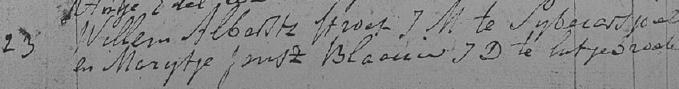 23 Willem Albertsz Stroet J M te Sybecarspel
en Marytje Jansz Blaauw J D te Lutjebroek